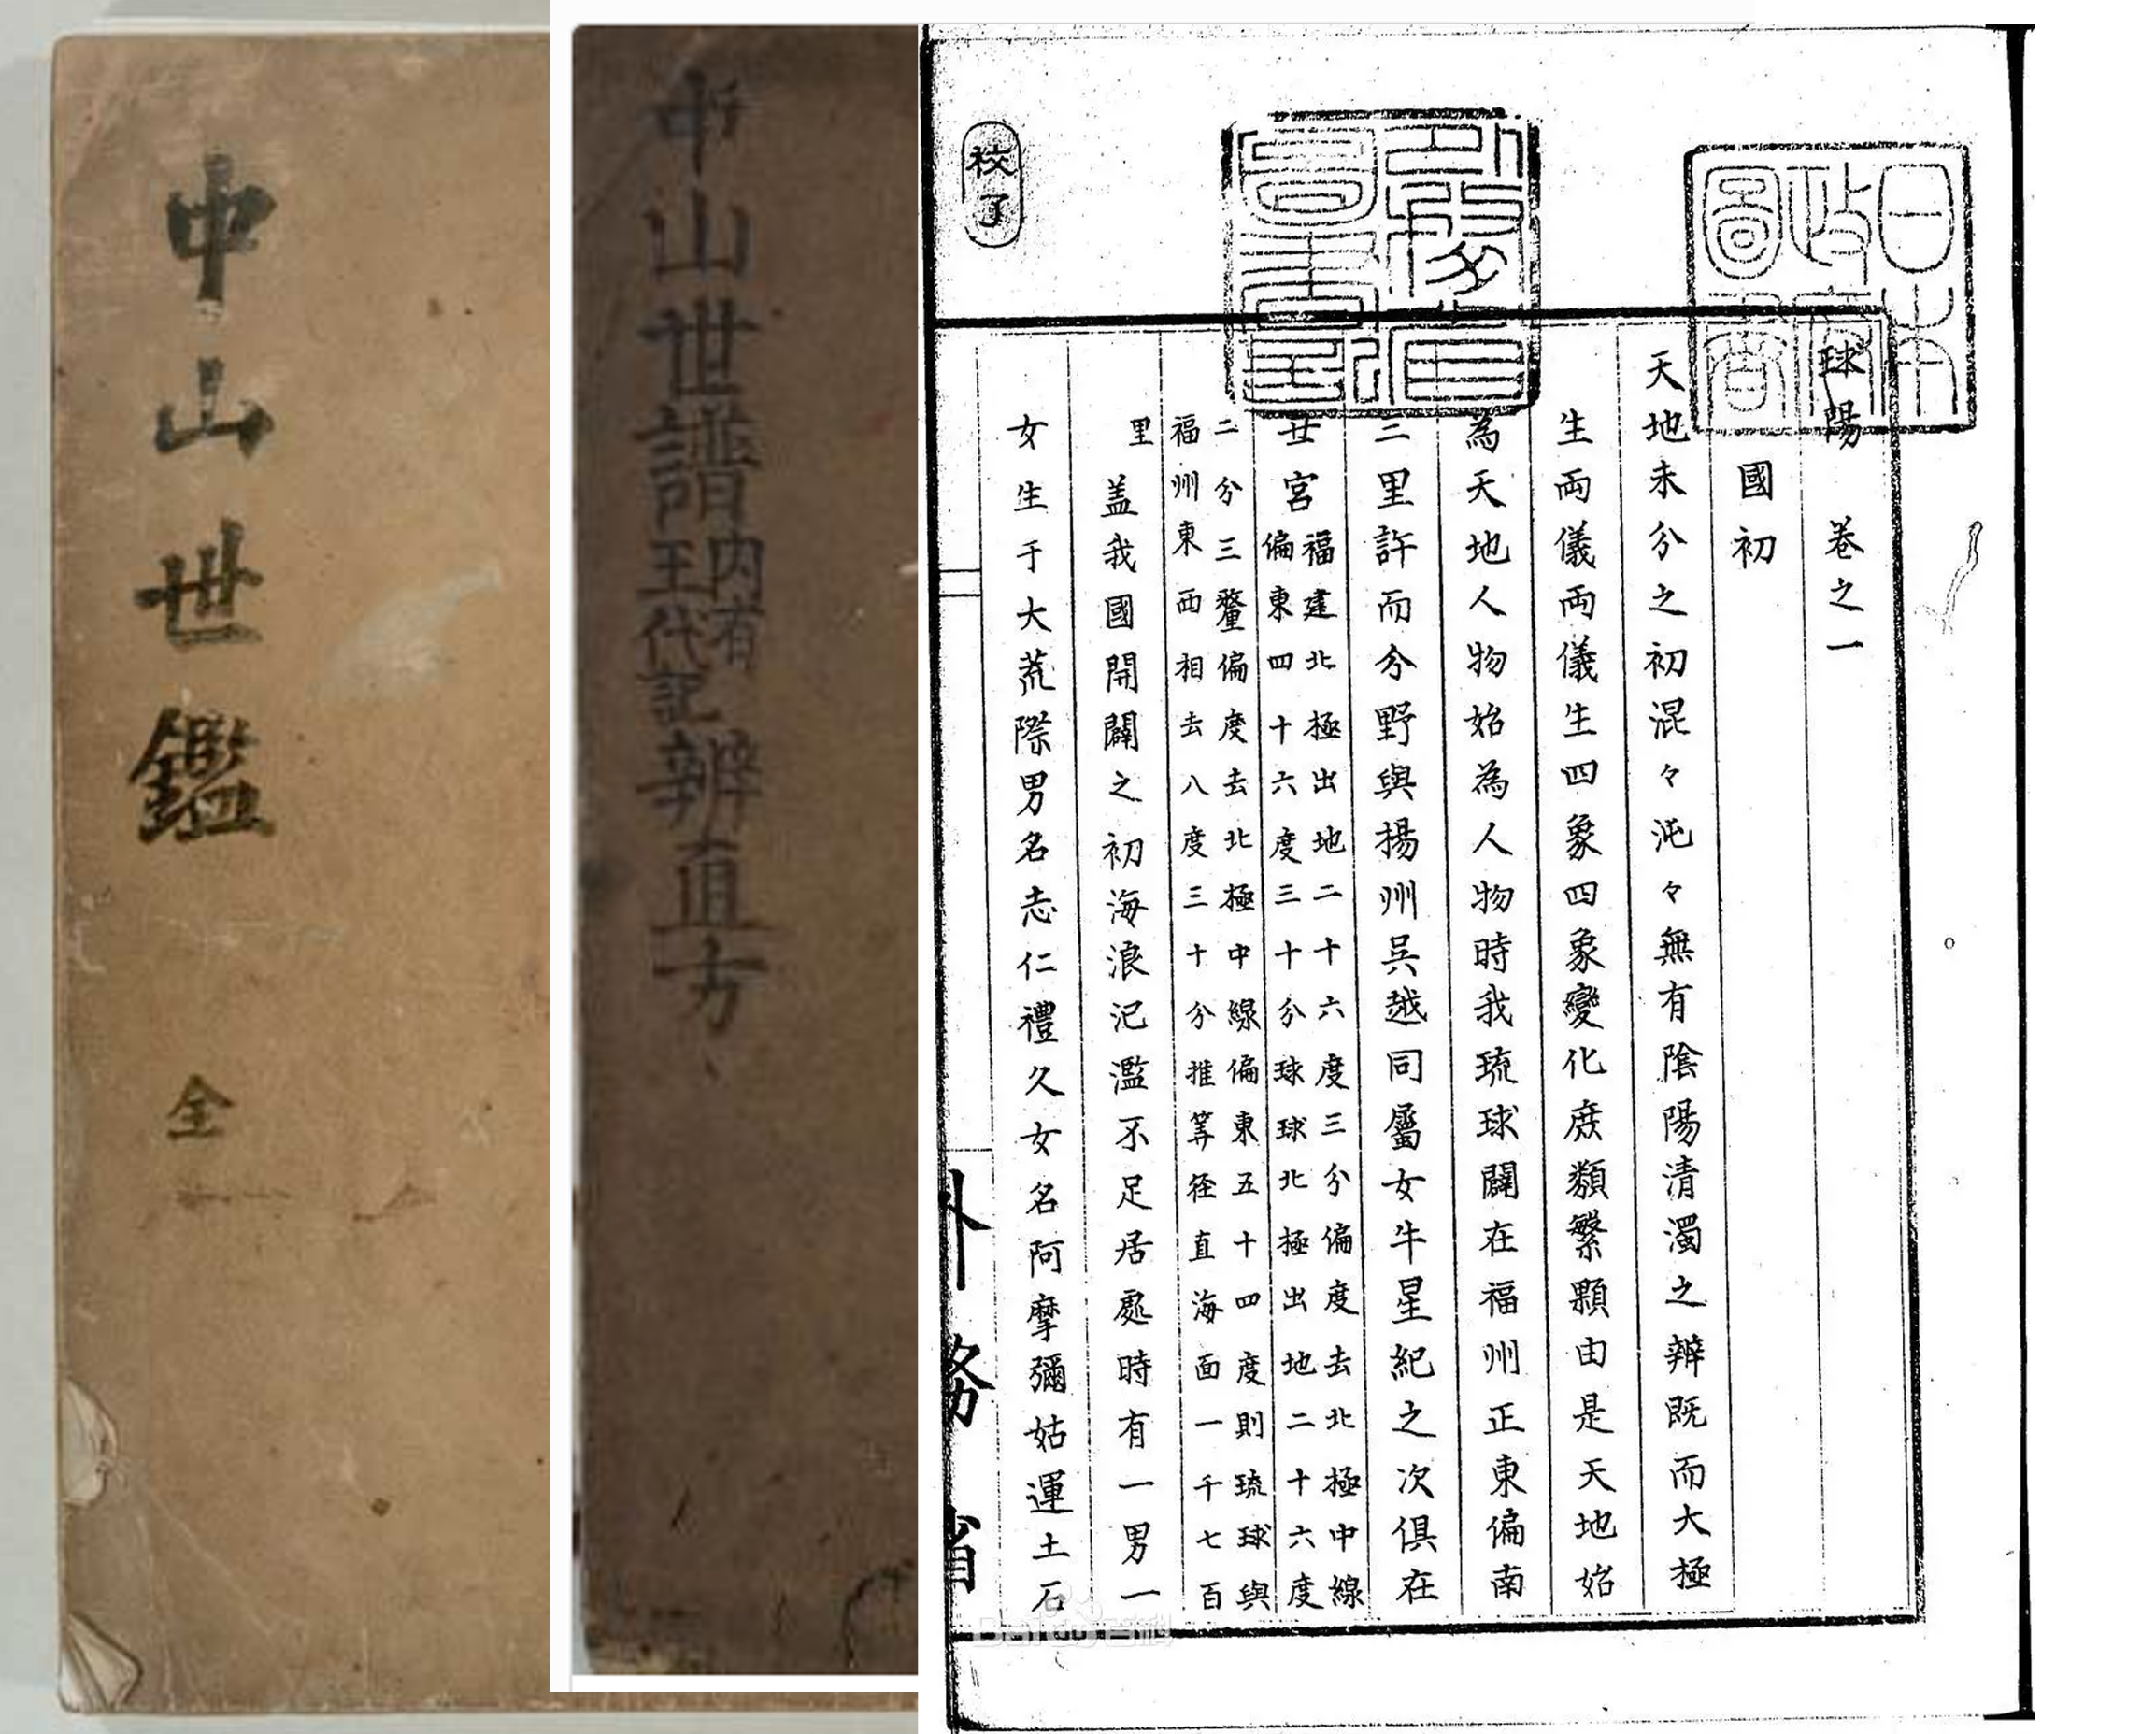 中山世鑑
全
中山世譜
内有
王代記
辨直方
校了
日本政府圖書
球陽 卷之一
國初
天地未分之初混々沌々無有陰陽清濁之辨既而大極
生両儀両儀生四象四象變化庶類繁顆由是天地始
為天地人物始為人物時我琉球闢在福州正東偏南
三里許而分野與揚州吳越同屬女牛星紀之次俱在
丑宮
福建北極出地二十六度三分偏度去北極中線
偏東四十六度三十分球球北極出地二十六度
二分三釐偏度去北極中線偏東五十四度則琉球與
福州東西相去八度三十分推筭径直海面一千七百
里
盖我國開闢之初海浪氾濫不足居處時有一男一
女生于大荒際男名志仁禮久女名阿摩彌姑運土石
外務省
Baidu百科